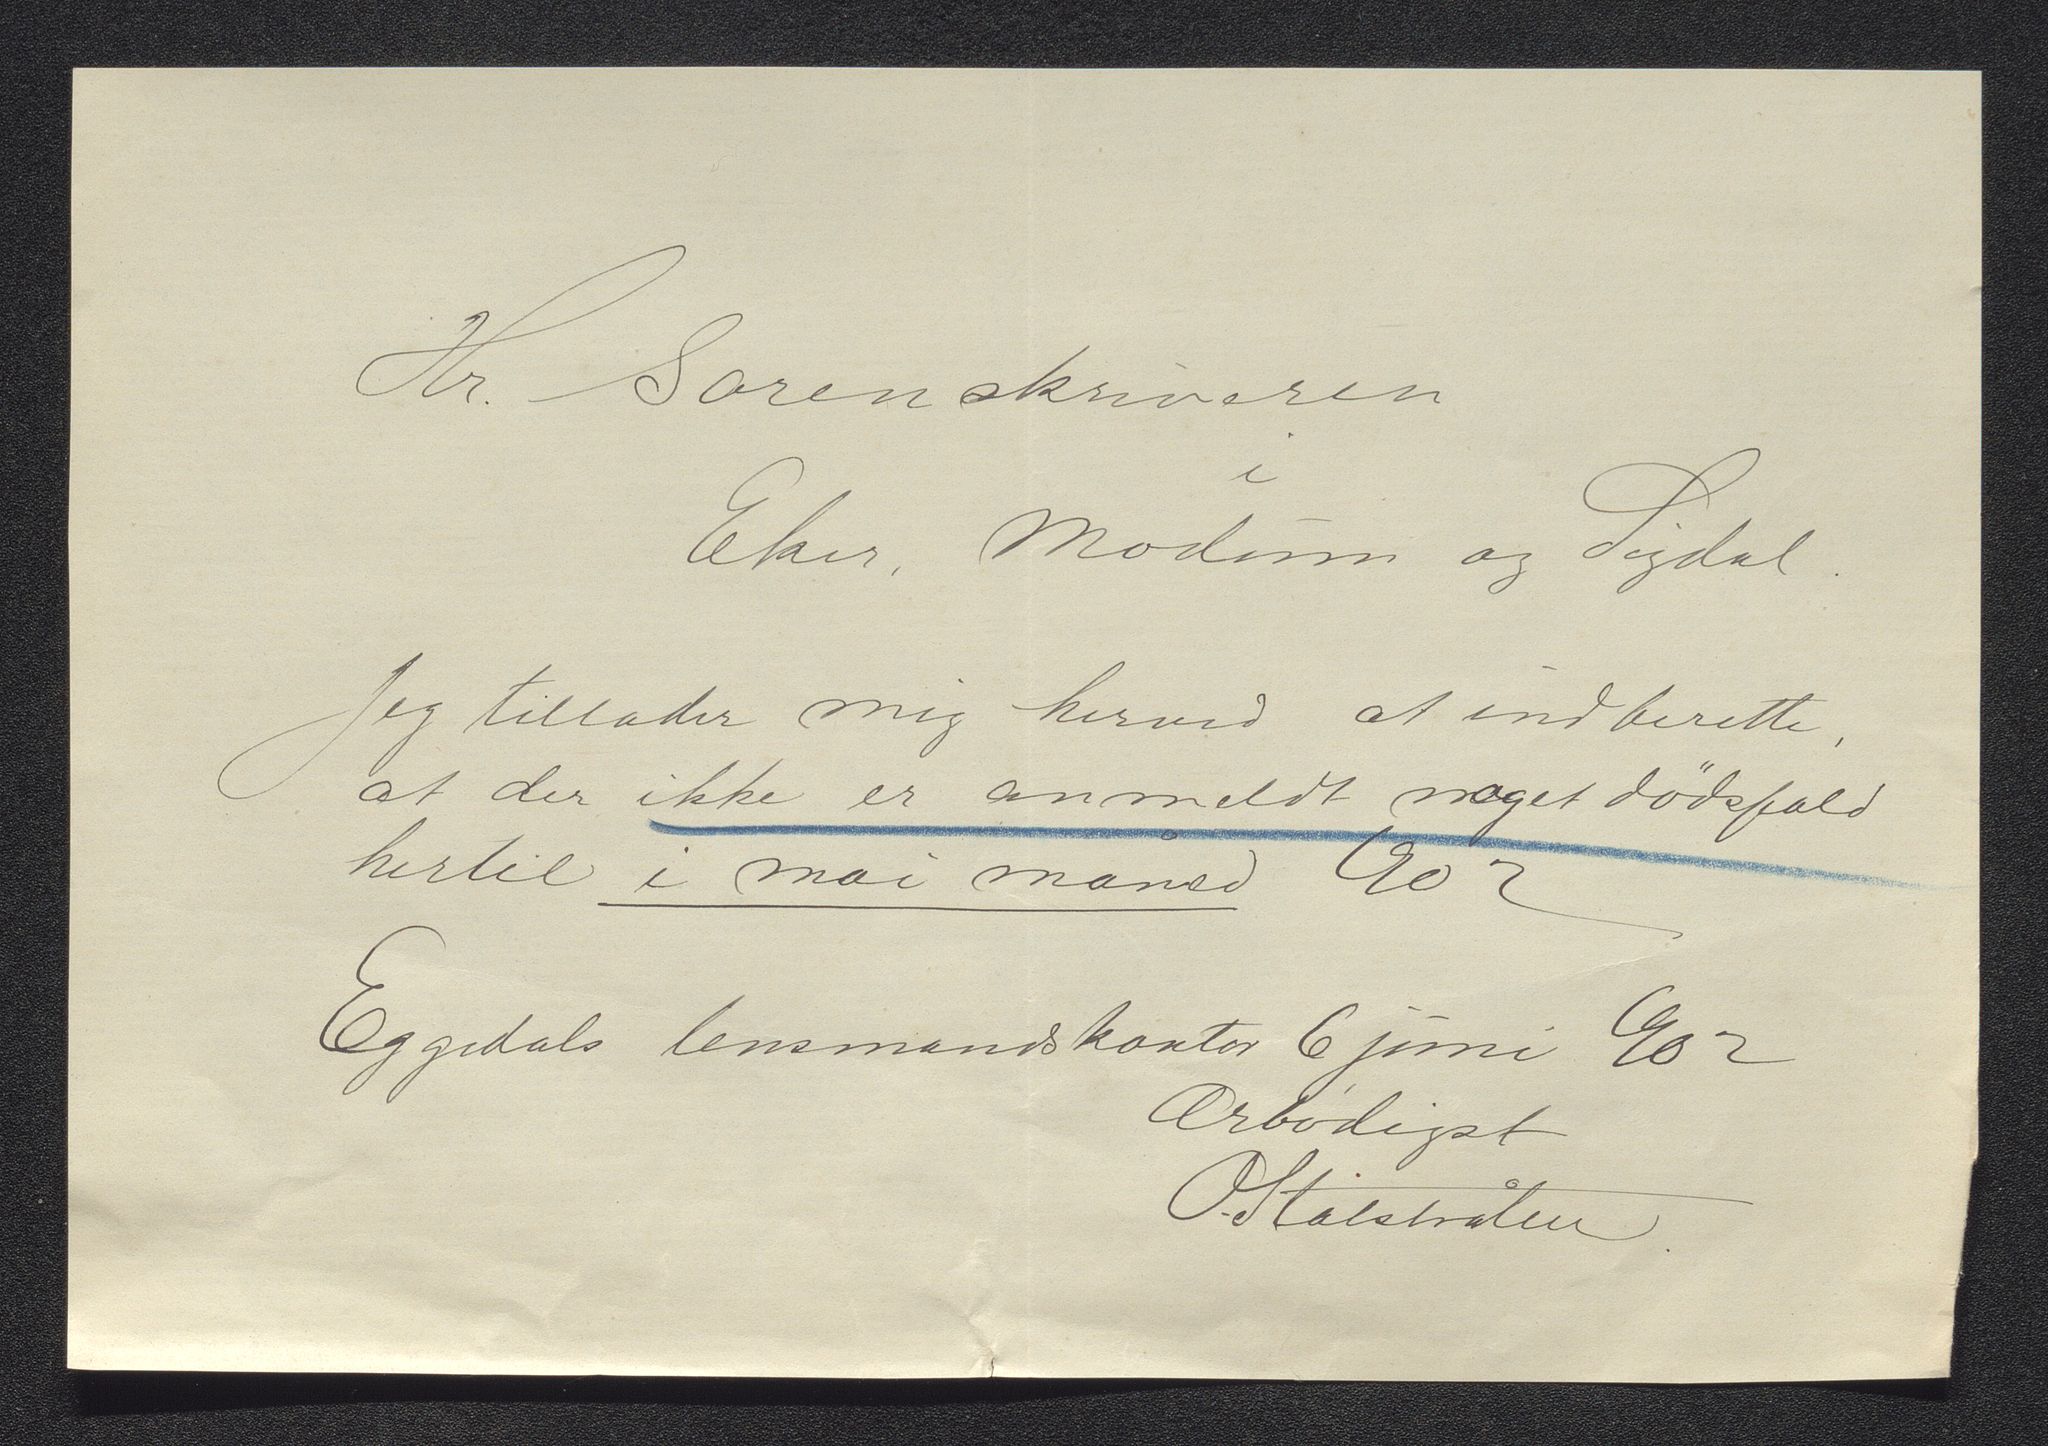 Hr. Sorenskriveren
i
Eker, Modum og Sigdal.
Jeg tillader mig herved at indberette,
at der ikke er anmeldt noget dödsfald
hertil i mai måned 902
Eggedals lensmandskontor 6 juni 902
Ærbödigst
O. Stålstråleu